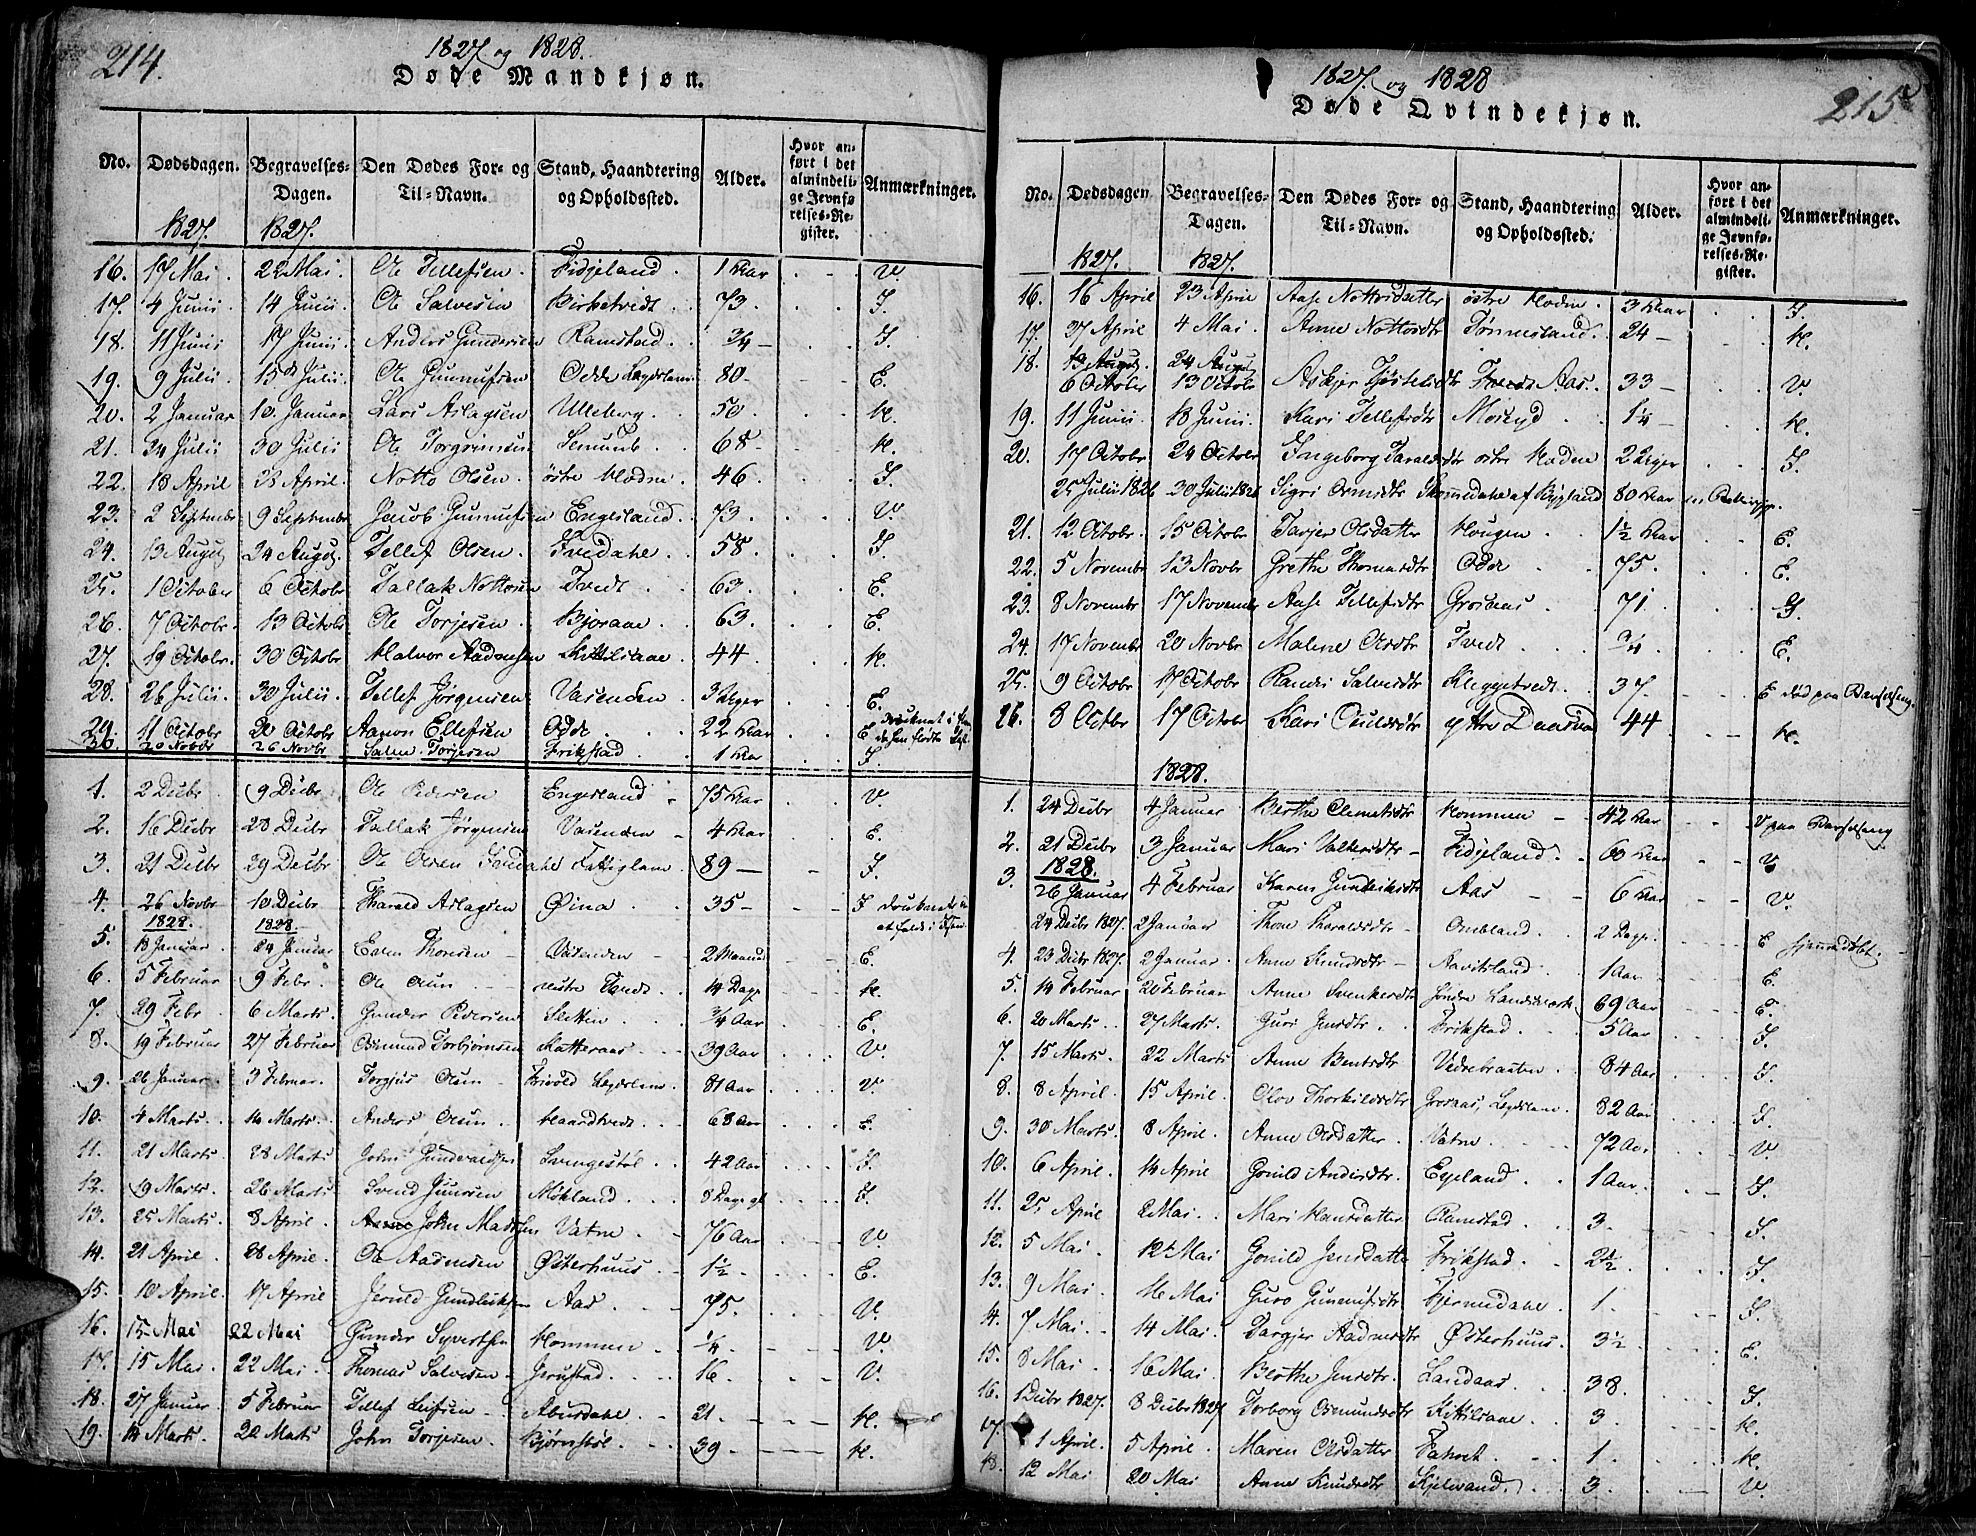 214.
1827 og 1828.
Døde Mandkjøn.
No. Dødsdagen. Begravelses-Dagen. Den Dødes For- og Til-Navn. Stand, Haandtering og Opholdssted. Alder. Hvor anført i det almindelige Jevnførelses-Register. Anmærkninger.
1827. 1827.
16. 17 Mai 22 Mai. Ole Tellefsen. Fidjeland. 1 Aar V.
17. 4 Junii 14 Junii. Ole Salvesen Birketvedt. 73. I.
18. 11 Junii 17 Junii. Anders Gundersen Ramstad. 3/4 I.
19. 9 Julii 15 Julii. Ole Gunnufsen Odde 80 E.
20. 2 Januar 10 Januar Lars Aslagsen Ulleberg. 50. H.
21. 24 Julii 30 Julii Ole Torgrimsen 68 H.
22. 18 April 28 April. Notto Olsen. østre Moen. 46. I.
23. 2 Septembr 9 Septembr Jacob Gunnufsen Engesland. 73. V.
24. 13 Augs. 24 Augs. Tellef Olsen. 58. I.
25. 1 October 6 Octobr Tallak Nottosen Tvedt. 63. E.
26. 7 Octobr. 13 Octobr Ole Torjesen 63. E.
27. 19 Octobr. 30 Octobr Halvor Aadnesen Kittilsaae. 44. H.
28. 26 Julii. 30 Julii. Tellef Jørgensen Vasenden. 3 Uger E.
29. 11 Octobr 20 Octobr Aanon Ellefsen Odde 22 Aar E druknet i
30. 20 Novbr 26 Novbr Torjesen Frikstad 1 Aar I.
1. 2 Decbr 9 Decbr Ole Pedersen Engesland 75 Aar V.
2. 16 Decbr 28 Decbr Tallak Jørgensen Vasenden 4 Aar E.
3. 21 Decbr 29 Decbr Ole Olsen 89 I.
4. 26 Novbr 10 Decbr Tharald Aslagsen Øina 35 I druknet
1828. 1828.
5. 18 Januar 24 Januar Thorsen Vasenden 2 Maaned E.
6. 5 Februar 9 Febr. Ole 14 Dage H.
7. 29 Febr. 6 Marts. Gunder Pedersen Sletten 3/4 Aar E.
8. 19 Februar 27 Februar Osmund Torbjørnsen Katteraas 39 Aar V.
9. 26 Januar. 3 Februar. Torgjus Olsen Frivold 81 Aar V.
10. 4 Marts. 14 Marts. Anders Olsen. Haardtvedt. 68 Aar E.
11. 21 Marts. 28 Marts John Gundvaldsen Svengestøl. 42 Aar I.
12. 19 Marts. 26 Marts. Svend Jensen Mokland. 8 I.
13. 25 Marts. 8 April. John Madssen Vatne. 76 Aar V.
14. 21 April. 28 April. Ole Aadnesen Østerhuus. 1½ E.
15. 10 April. 17 April Jeruld Gundleiksen Aas. 75. V.
16. 15 Mai 22 Mai Gunder Syvertsen Hommen 1/4. V.
17. 15 Mai 22 Mai. Thomas Salvesen. Jerustad. 16. V.
18. 27 Januar 5 Februar Tellef Leifsen Abusdahl. 21. H.
19. 14 Marts. 20 Marts John Torjesen. Bjørnstøl. 39 H.
1827. og 1828
Døde Qvindekjøn.
215
No. Dødsdagen. Begravelses-Dagen. Den Dødes For- og Til-Navn. Stand, Haandtering og Opholdssted. Alder. Hvor anført i det almindelige Jevnførelses-Register. Anmærkninger.
1827. 1827.
16. 16 April 23 April Aase Nottosdatter østre Moen. 3 Aar I.
17. 27 April 4 Mai. Anne Nottosdtr Tønnesland. 24 H.
18. 13 Augs. 24 Augs
6 October 13 Octobr Askjer Aas. 33 V.
19. 11 Junii. 18 Junii. Kari Tellefsdtr 14 H.
20. 17 Octobr 24 Octobr Ingeborg Taraldsdtr østre Moen 2 Uger I.
25 Julii 1826 30 Julii 1826 Sigri af Bygland 80 Aar
21. 12 Octobr. 15 Octobr Tarjer Olsdatter Hougen. 1½ Aar E.
22. 5 Novembr 13 Novbr Grethe Thomasdtr Odde 75. E.
23. 8 Novembr 17 Novembr Aase Tellefsdtr Grosaas. 71.
24. 17 Novembr 20 Novbr Malene Olsdtr Tvedt. 3/4 E.
25. 9 Octobr 17 Octobr Randi Salvesdtr Kleggetvedt. 37. E død paa Barselseng.
26. 8 Octbr 17 Octobr Kari ytre 44 H.
1828.
1. 24 Decbr 4 Januar Berthe Clemetsdtr Hommen 42 Aar V paa Barselseng
2. 21 Decbr 3 Januar Mari Fidjeland. 60 Aar V
1828.
3. 26 Januar 4 Februar Karen Aas 6 Aar V.
24 Decbr 1827. 2 Januar Thone Tharaldsdtr Omland. 2 Dage. E hjemmedøbt.
4. 23 Decbr 1827. 2 Januar. Anne Knudsdtr Aavitsland. 1 Aar E.
5. 14 Februar 20 Februar Anne 69 Aar E.
6. 20 Marts. 27 Marts. Guri Jensdtr. Frikstad. 5 Aar I.
7. 15 Marts. 22 Marts Anne Berntsdtr Vedrebraaten 84 Aar I.
8. 8 April. 15 April. Olov Thorkildsdtr Grosaas, 82 Aar I.
9. 30 Marts. 8 April. Anne Olsdatter. Vatne. 72 Aar V
10. 6 April. 14 April Gonild Andersdtr. Eyeland. 1 Aar. I.
11. 25 April 2 Mai. Mari Hansdatter Ramstad. 3. I.
12. 5 Mai. 12 Mai Gonild Jensdatter Frikstad. 2½ I.
13. 9 Mai 16 Mai Guro Gunnufsdtr Hjermedahl. 1. I.
14. 7 Mai. 14 Mai. Aadnesdtr Østerhuus. 3½ E.
15. 8 Mai. 16 Mai. Berthe Jensdtr. Landaas. 38. I.
16. 1 Decbr 1827. 8 Decbr 1827 Torborg Osmundsdtr Kittilsaae. 3. H.
17. 1 April. 5 April. Maren Olsdatter 1. H.
18. 12 Mai 20 Mai Anne Knudsdtr 3. V.